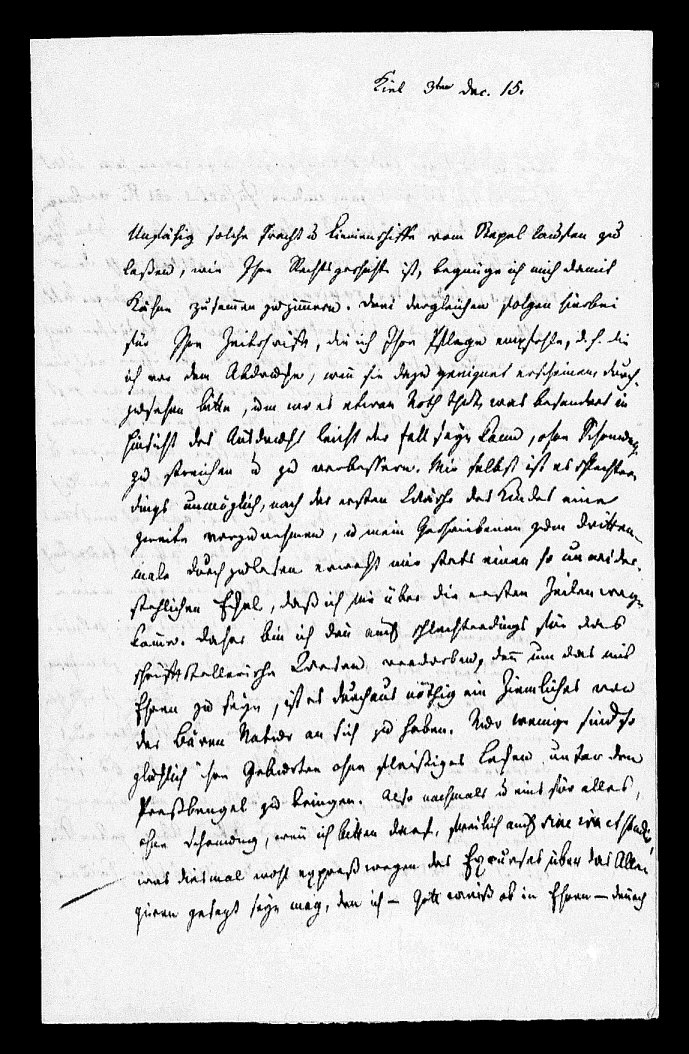 Kiel 3ten Dec. 15.
Unfähig solche Pracht u Linienschiffe vom Stapel laufen zu
laßen, wie Ihre Rechtsgeschichte ist, begnüge ich mich damit
Kähne zusammen zu zimmern. Drei dergleichen folgen hierbei
für Ihre Zeitschrift, die ich Ihrer Pflege empfehle, d. h. die
ich vor dem Abdrucke, wenn sie dazu geeignet erscheinen, durch-
zusehen bitte, um wo es etwan Noth thut, was besonders in
Hinsicht des Ausdrucks leicht der Fall seyn kann, ohne Schonung
zu streichen u zu verbessern. Mir selbst ist es schlechter-
dings unmöglich, nach der ersten Wäsche des Kindes eine
zweite vorzunehmen, u mein Geschriebenes zum dritten-
male durchzulesen erweckt mir stets einen so unwider-
stehlichen Ekel, daß ich nie über die ersten Zeilen weg-
komme. Daher bin ich denn auch schlechterdings für das
schriftstellerische Wesen verdorben, denn um das mit
Ehren zu seyn, ist es durchaus nöthig ein Ziemliches von
der Bären Natur an sich zu haben. Nur wenige sind so
glücklich ihre Geburten ohne fleißiges Lecken unter den
Preßbengel zu bringen. Also nochmals u eins für alles,
ohne Schonung, wenn ich bitten darf, freilich auch sine ira et studio
was diesmal wohl expreß wegen des Excurses über das Alle-
giren gesagt seyn mag, den ich – Gott weiß ob in Ehren – durch